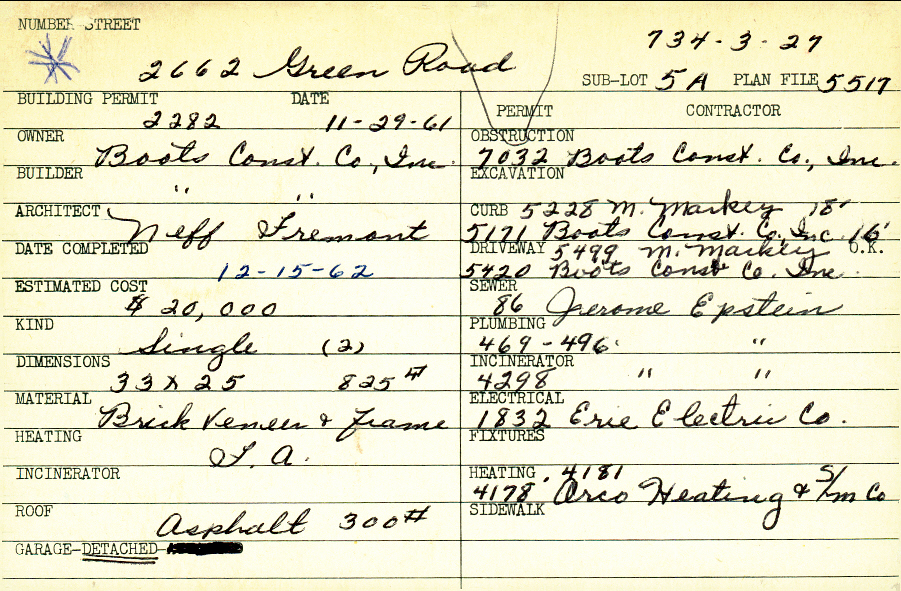 NUMBER STREET
734-3-27
2662 Green Road
SUB-LOT 5A PLAN FILE 5517
BUILDING PERMIT DATE
2282 11-29-61
OWNER
Boots Const. Co., Inc.
BUILDER
" "
ARCHITECT
Neff Fremont
DATE COMPLETED
12-15-62
ESTIMATED COST
$ 20,000
KIND
Single (2)
DIMENSIONS
33 x 25 825 #
MATERIAL
Brick Veneer & Frame
HEATING
F. A.
INCINERATOR
ROOF
Asphalt 300#
GARAGE-DETACHED
PERMIT CONTRACTOR
OBSTRUCTION
7032 Boots Const. Co., Inc.
EXCAVATION
CURB 5228 M. Markey 18'
5171 Boots Const. Co. Inc. 16'
DRIVEWAY 5499 M. Markey O.K.
5420 Boots Const Co. Inc.
SEWER
86 Jerome Epstein
PLUMBING
469-496 "
INCINERATOR
4298 " "
ELECTRICAL
1832 Erie Electric Co.
FIXTURES
HEATING 4181
4178 Arco Heating & S/m Co
SIDEWALK